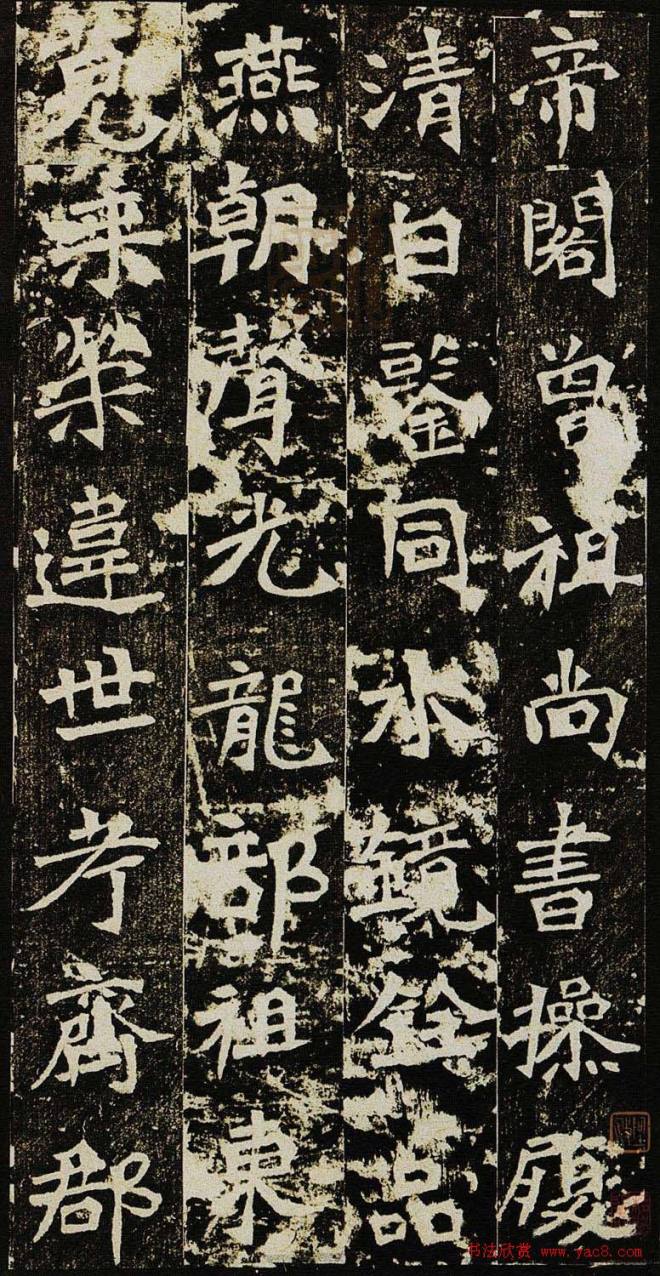 帝閣曾祖尚書操履
清白鑒同氷鏡銓品
燕朝聲光龍部祖東
莞乘榮違世考齊郡
书法欣赏 www.yac8.com